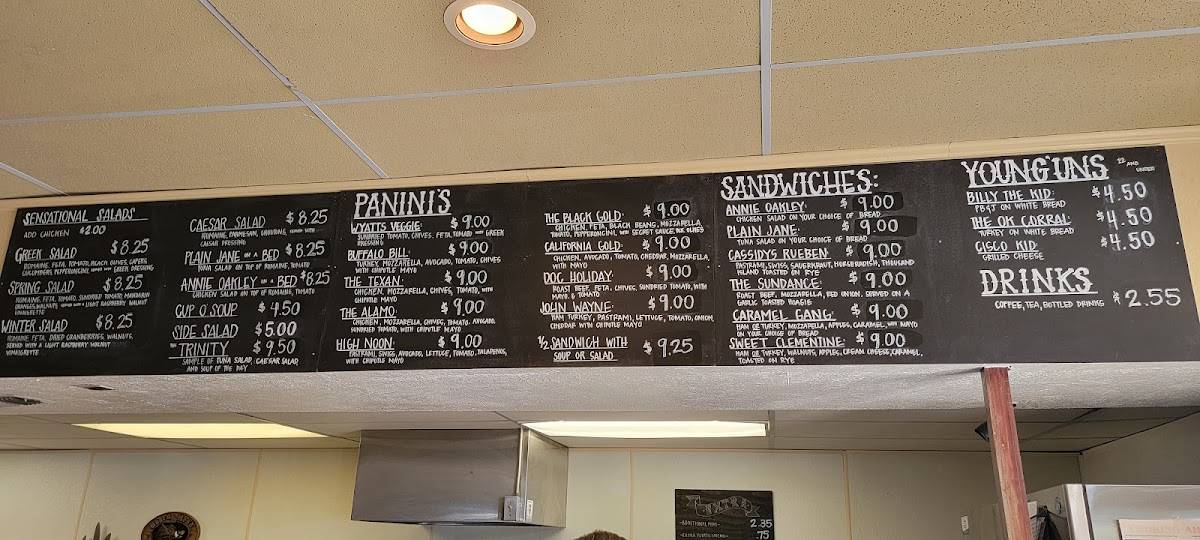 SENSATIONAL SALADS
ADD CHICKEN $2.00
GREEK SALAD $8.25
ROMAINE, FETA, TOMATO, BLACK OLIVES, CAPERS,
CUCUMBERS, PEPPERONCINI, SERVED WITH GREEK DRESSING
SPRING SALAD $8.25
ROMAINE, FETA, TOMATO, SUNDRIED TOMATO, MANDARIN
ORANGES, WALNUTS, SERVED WITH A LIGHT RASPBERRY WALNUT
VINAIGRETTE
WINTER SALAD $8.25
ROMAINE, FETA, DRIED CRANBERRIES, WALNUTS,
SERVED WITH A LIGHT RASPBERRY WALNUT
VINAIGRETTE
CAESAR SALAD $8.25
ROMAINE, PARMESAN, SERVED WITH
CAESAR DRESSING
PLAIN JANE ON A BED $8.25
TUNA SALAD ON TOP OF ROMAINE, TOMATO
ANNIE OAKLEY ON A BED $8.25
CHICKEN SALAD ON TOP OF ROMAINE, TOMATO
CUP O'SOUP $4.50
SIDE SALAD $5.00
THE TRINITY $9.50
SAMPLE OF TUNA SALAD, CAESAR SALAD,
AND SOUP OF THE DAY
PANINI'S
WYATTS VEGGIE: $9.00
SUNDRIED TOMATO, CHIVES, FETA, TOMATO WITH GREEK
DRESSING
BUFFALO BILL: $9.00
TURKEY, MOZZARELLA, AVOCADO, TOMATO, CHIVES
WITH CHIPOTLE MAYO
THE TEXAN: $9.00
CHICKEN, MOZZARELLA, CHIVES, TOMATO, WITH
CHIPOTLE MAYO
THE ALAMO: $9.00
CHICKEN, MOZZARELLA, CHIVES, TOMATO, AVOCADO,
SUNDRIED TOMATO, WITH CHIPOTLE MAYO
HIGH NOON: $9.00
PASTRAMI, SWISS, AVOCADO, LETTUCE, TOMATO, JALAPENOS,
WITH CHIPOTLE MAYO
THE BLACK GOLD: $9.00
CHICKEN, FETA, BLACK BEANS, MOZZARELLA,
TOMATO, PEPPERONCINI, WITH SECRET SAUCE
CALIFORNIA GOLD: $9.00
CHICKEN, AVOCADO, TOMATO, CHEDDAR, MOZZARELLA,
WITH MAYO
DOC HOLIDAY: $9.00
ROAST BEEF, FETA, CHIVES, SUNDRIED TOMATO, WITH
MAYO & TOMATO
JOHN WAYNE: $9.00
HAM, TURKEY, PASTRAMI, LETTUCE, TOMATO, ONION,
CHEDDAR WITH CHIPOTLE MAYO
½ SANDWICH WITH $9.25
SOUP OR SALAD
SANDWICHES:
ANNIE OAKLEY: $9.00
CHICKEN SALAD ON YOUR CHOICE OF BREAD
PLAIN JANE: $9.00
TUNA SALAD ON YOUR CHOICE OF BREAD
CASSIDYS RUEBEN: $9.00
PASTRAMI, SWISS, SAUERKRAUT, HORSERADISH, THOUSAND
ISLAND TOASTED ON RYE
THE SUNDANCE: $9.00
ROAST BEEF, MOZZARELLA, RED ONION, SERVED ON A
GARLIC TOASTED HOAGIE
CARAMEL GANG: $9.00
HAM OR TURKEY, MOZZARELLA, APPLES, CARAMEL, WITH MAYO
ON YOUR CHOICE OF BREAD
SWEET CLEMENTINE: $9.00
HAM OR TURKEY, WALNUTS, APPLES, CREAM CHEESE, CARAMEL,
TOASTED ON RYE
YOUNG'UNS 12 AND UNDER
BILLY THE KID: $4.50
PB&J ON WHITE BREAD
THE OK CORRAL: $4.50
TURKEY ON WHITE BREAD
CISCO KID: $4.50
GRILLED CHEESE
DRINKS
COFFEE, TEA, BOTTLED DRINKS $2.55
EXTRA
ADDITIONAL MEAT 2.35
.75